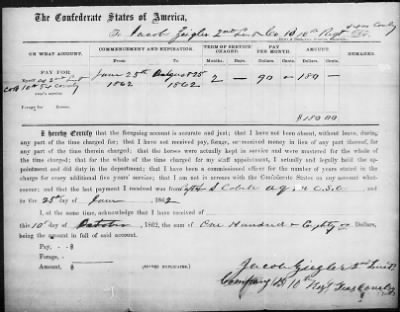 The Confederate States of America,
To Jacob Zeigler 2nd Lieut Co D 10th Regt Texas Cavalry Dr.
ON WHAT ACCOUNT.
COMMENCEMENT AND EXPIRATION.
TERM OF SERVICE CHARGED.
PAY PER MONTH.
AMOUNT.
From To Months. Days. Dolls. Cents. Dolls. Cents.
PAY FOR
June 25th August 25 2 — 90 — 180 —
1862 1862
Forage for Horses
$180.00
I hereby Certify that the foregoing account is accurate and just; that I have not been absent, without leave, during
any part of the time charged for; that I have not received pay, forage, or received money in lieu of any part thereof, for
any part of the time therein charged; that the horses were actually kept in service and were mustered for the whole of
the time charged; that for the whole of the time charged for my staff appointment, I actually and legally held the
appointment and did duty in the department; that I have been a commissioned officer for the number of years stated in the
charge for every additional five years' service; that I am not in arrears with the Confederate States on any account what-
soever; and that the last payment I received was from Capt and
to the 25th day of June 1862
I, at the same time, acknowledge that I have received of
this 10th day of October, 1862, the sum of One Hundred & Eighty Dollars,
being the amount in full of said account.
Pay, - - $
Forage, -
Amount, $
(SIGNED DUPLICATES.)
Jacob Ziegler 2nd Lieut
Company D 10th Regt Texas Cavalry